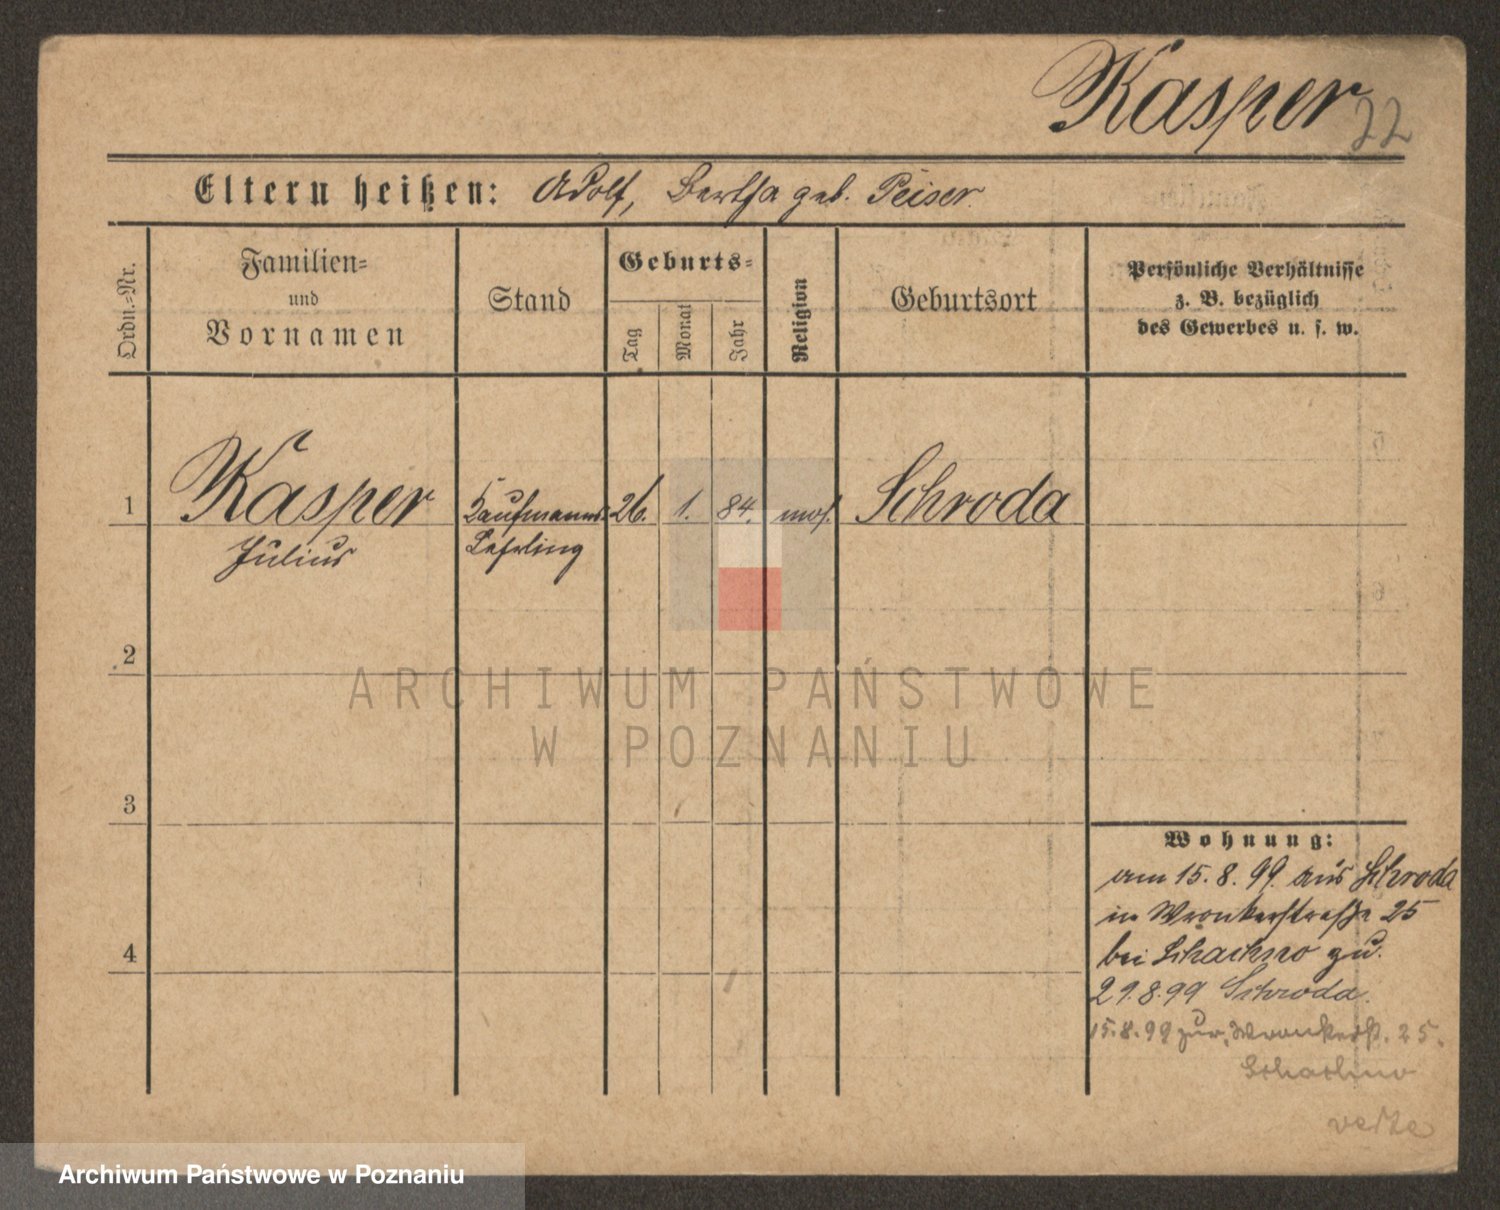 Kasper
22
Eltern heißen: Adolf, Bertha geb. Peiser.
Ordn.-Nr.
Familien-
und
Vornamen
Stand
Geburts-
Tag
Monat
Jahr
Religion
Geburtsort
Persönliche Verhältnisse
z. B. bezüglich
des Gewerbes u. s. w.
1 Kasper Kaufmanns 26. 1. 84. mos. Schroda
Julius Lehrling
2
3
4
Wohnung:
am 15. 8. 99. aus Schroda
in Wronkerstraße 25
bei Schachno zu.
29.8.99 Schroda.
15.8.99 zur. Wronkerst. 25.
Schachno
ARCHIWUM PAŃSTWOWE
W POZNANIU
Archiwum Państwowe w Poznaniu